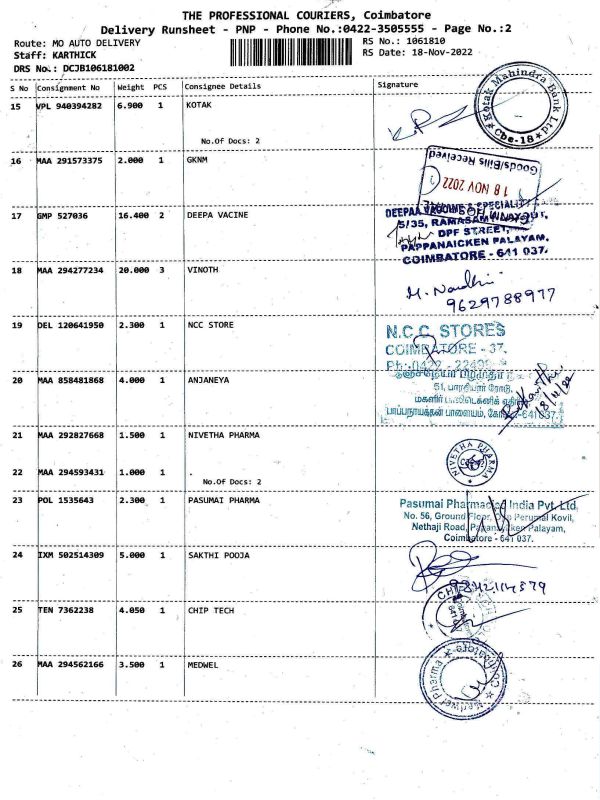 THE PROFESSIONAL COURIERS, Coimbatore
Delivery Runsheet - PNP - Phone No.:0422-3505555 - Page No.:2
Route: MO AUTO DELIVERY
RS No.: 1061810
Staff: KARTHICK
RS Date: 18-Nov-2022
DRS No.: DCJB106181002
S No Consignment No Weight PCS Consignee Details Signature
15 VPL 940394282 6.900 1 KOTAK
Kotak Mahindra Bank Ltd
Cbe-18
No.Of Docs: 2
16 MAA 291573375 2.000 1 GKNM
Goods/Bills Received
18 NOV 2022
17 GMP 527036 16.400 2 DEEPA VACINE
5/35, RAMASAMY
DPF STREET,
PAPPANAICKEN PALAYAM,
COIMBATORE - 641 037.
18 MAA 294277234 20.000 3 VINOTH
9629788977
19 DEL 120641950 2.300 1 NCC STORE
N.C.C. STORES
COIMBATORE - 37.
20 MAA 858481868 4.000 1 ANJANEYA
51, பாரதியார் ரோடு,
18/11/22
21 MAA 292827668 1.500 1 NIVETHA PHARMA
NIVETHA PHARMA
22 MAA 294593431 1.000 1
No.Of Docs: 2
23 POL 1535643 2.300 1 PASUMAI PHARMA
Pasumai Pharmacies India Pvt. Ltd,
No. 56, Ground Floor, Perumal Kovil,
Nethaji Road, Pappanaicken Palayam,
Coimbatore - 641 037.
24 IXM 502514309 5.000 1 SAKTHI POOJA
25 TEN 7362238 4.050 1 CHIP TECH
26 MAA 294562166 3.500 1 MEDWEL
Pharma
Coimbatore